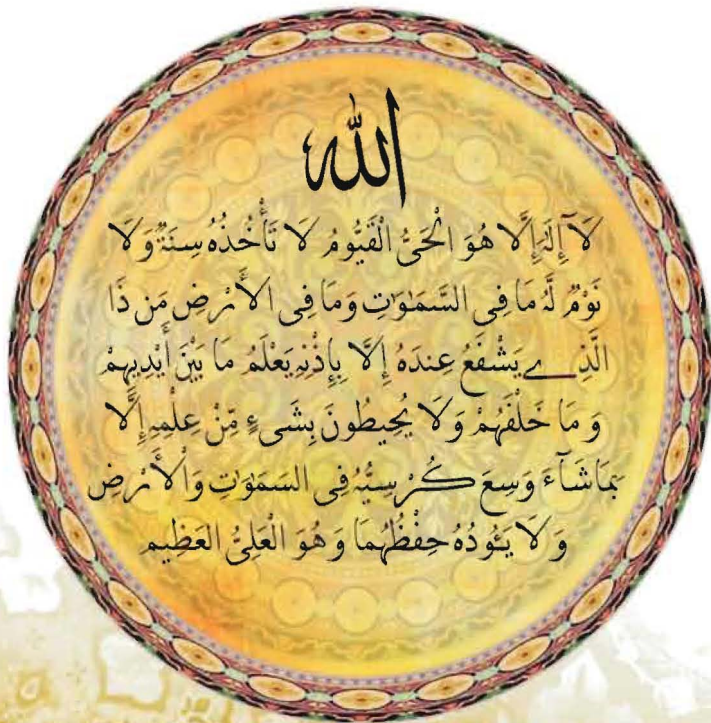 الله
لَآ إِلَهَ إِلَّا هُوَ الْحَيُّ الْقَيُّومُ لَا تَأْخُذُهُ سِنَةٌ وَلَا
نَوْمٌ لَهُ مَا فِي السَّمَوَاتِ وَمَا فِي الْأَرْضِ مَن ذَا
الَّذِي يَشْفَعُ عِندَهُ إِلَّا بِإِذْنِهِ يَعْلَمُ مَا بَيْنَ أَيْدِيهِمْ
وَمَا خَلْفَهُمْ وَلَا يُحِيطُونَ بِشَيْءٍ مِّنْ عِلْمِهِ إِلَّا
بِمَا شَآءَ وَسِعَ كُرْسِيُّهُ فِي السَمَوَاتِ وَالْأَرْضِ
وَلَا يَئُودُهُ حِفْظُهُمَا وَهُوَ الْعَلِيُّ الْعَظِيمِ